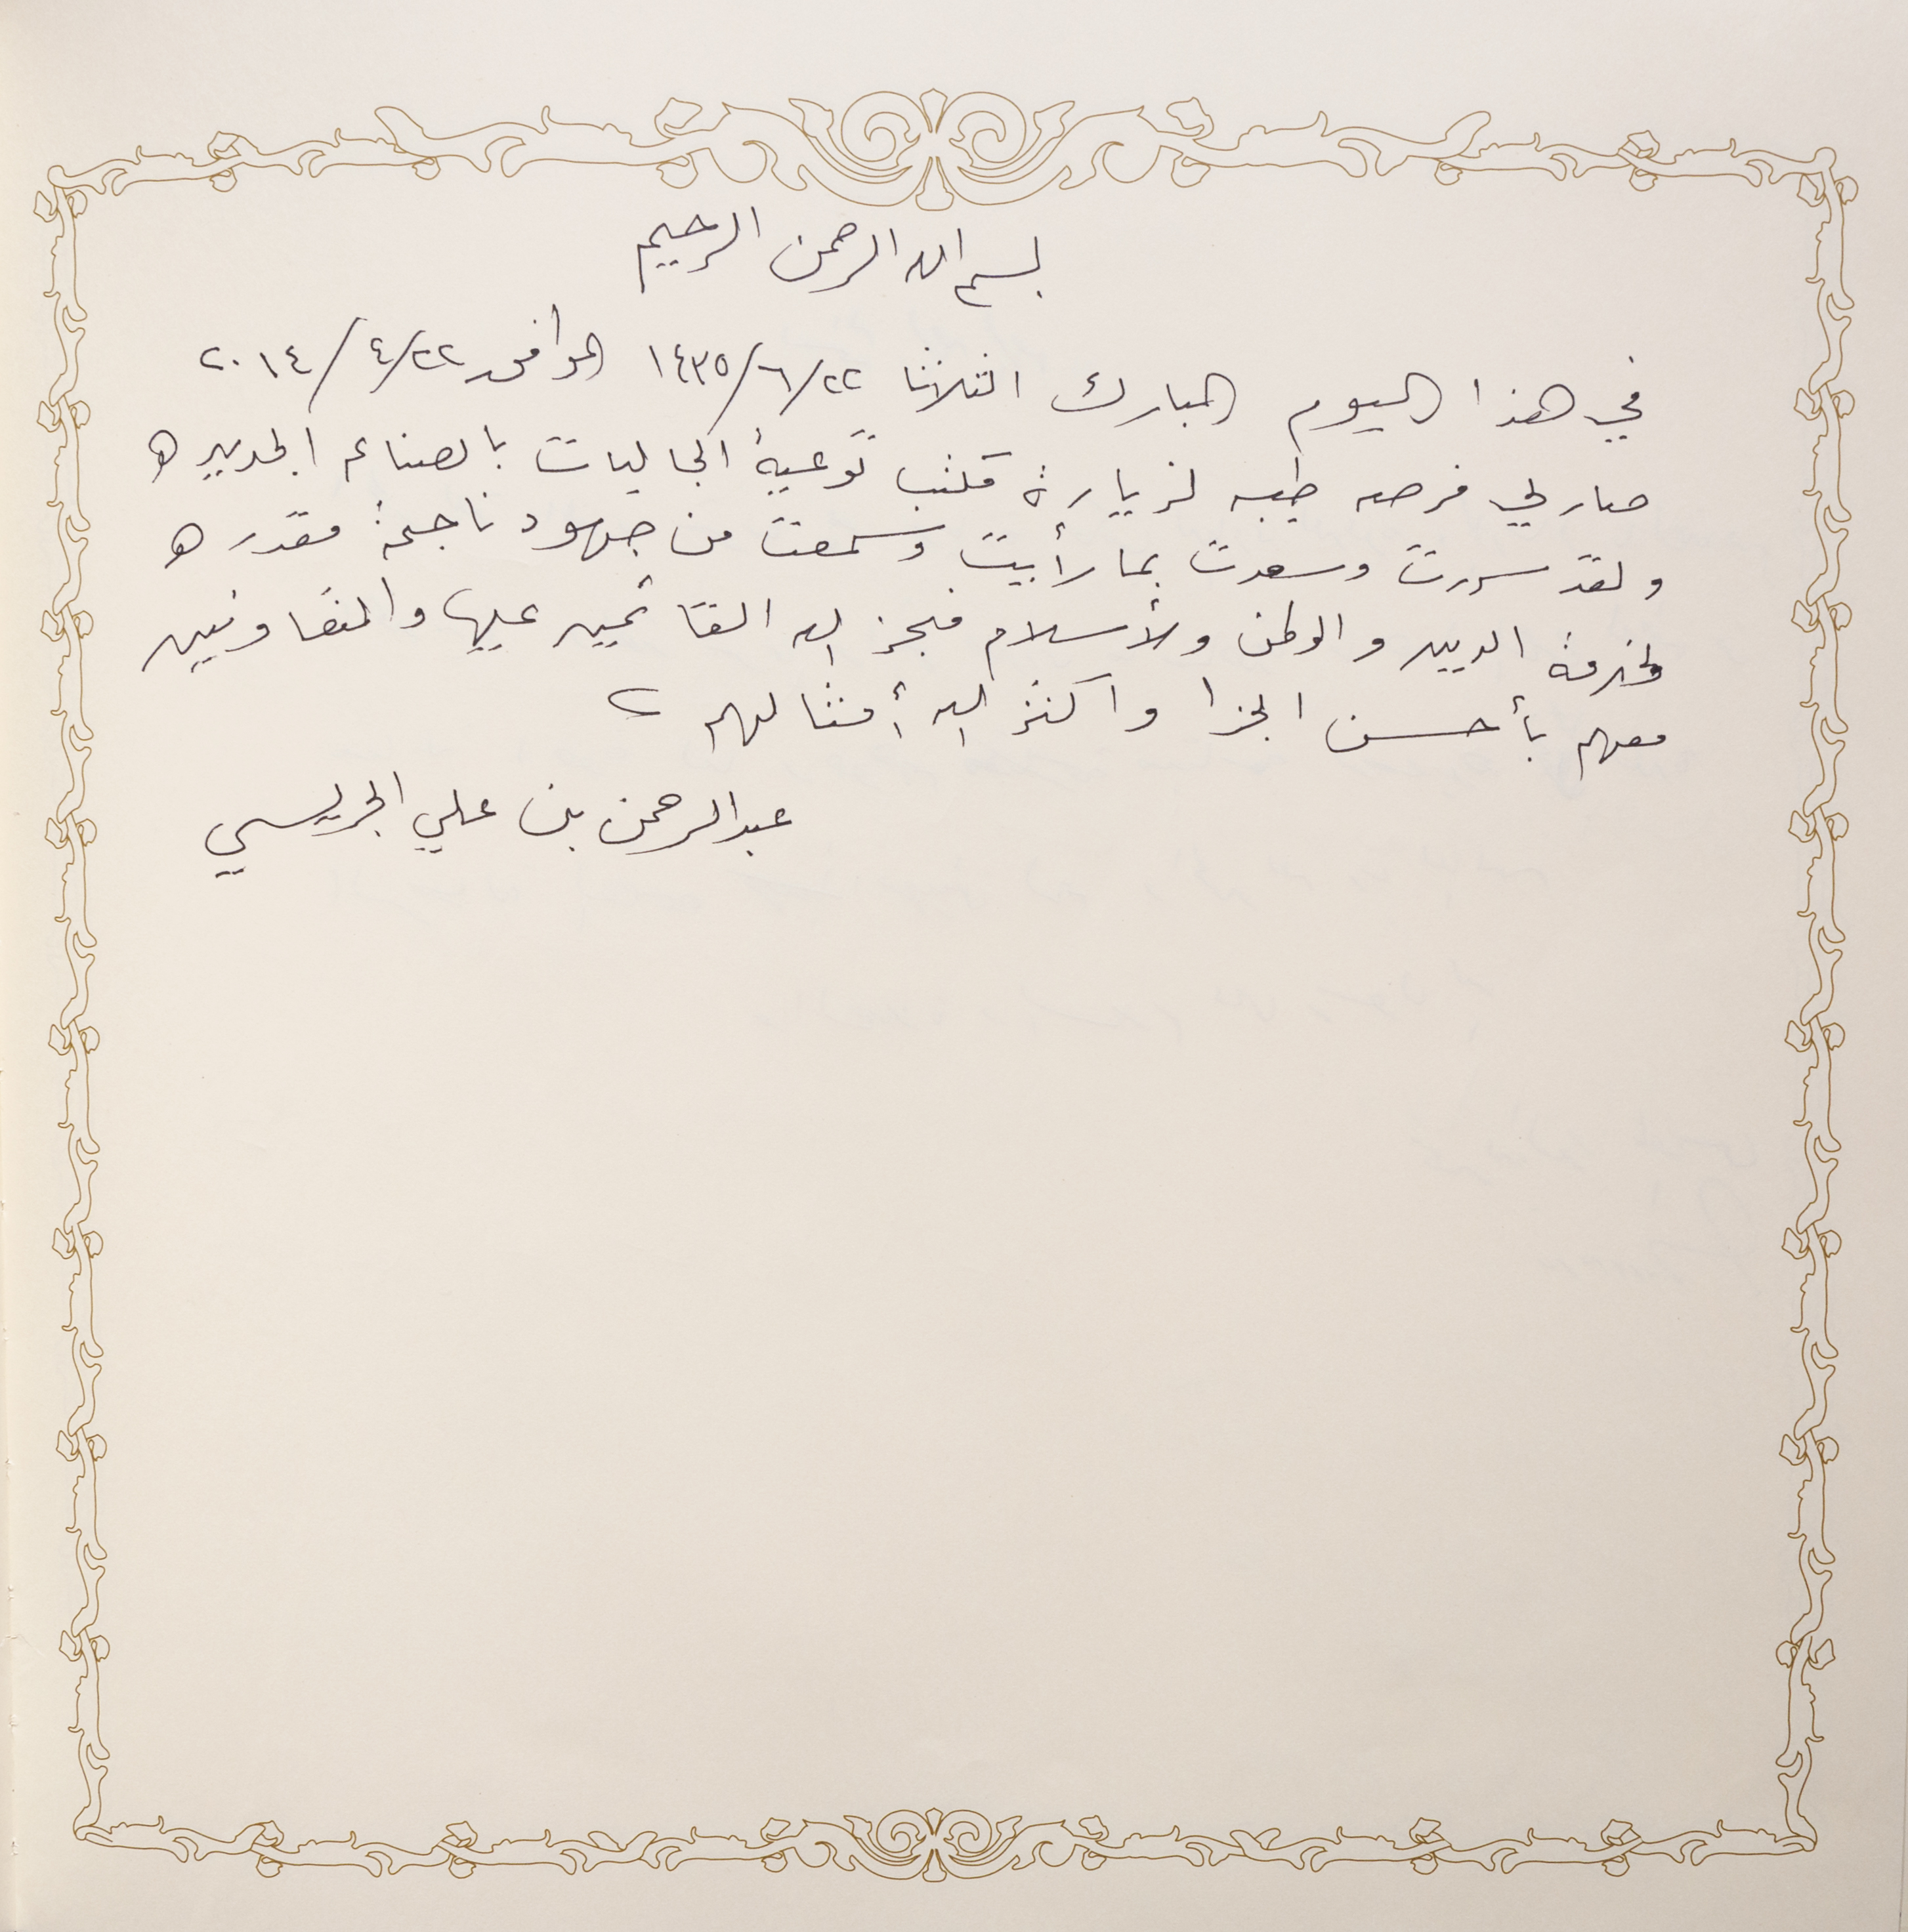 بسم الله الرحمن الرحيم
في هذا اليوم المبارك الثلاثا ١٤٣٥/٦/٢٢ الموافق ٢٠١٤/٤/٢٢
صار لي فرصه طيبه لزيارة مكتب توعية الجاليات بالصناعه الجديده
ولقد سررت وسعدت بما رأييت وسمعت من جهود ناجحة مقدره
لخدمة الدين والوطن ولأسلام فجز الله القائمين عليها والمتعاونين
معهم بأحسن الجزا واكثر الله أمثالهم
عبدالرحمن بن علي الجريسي